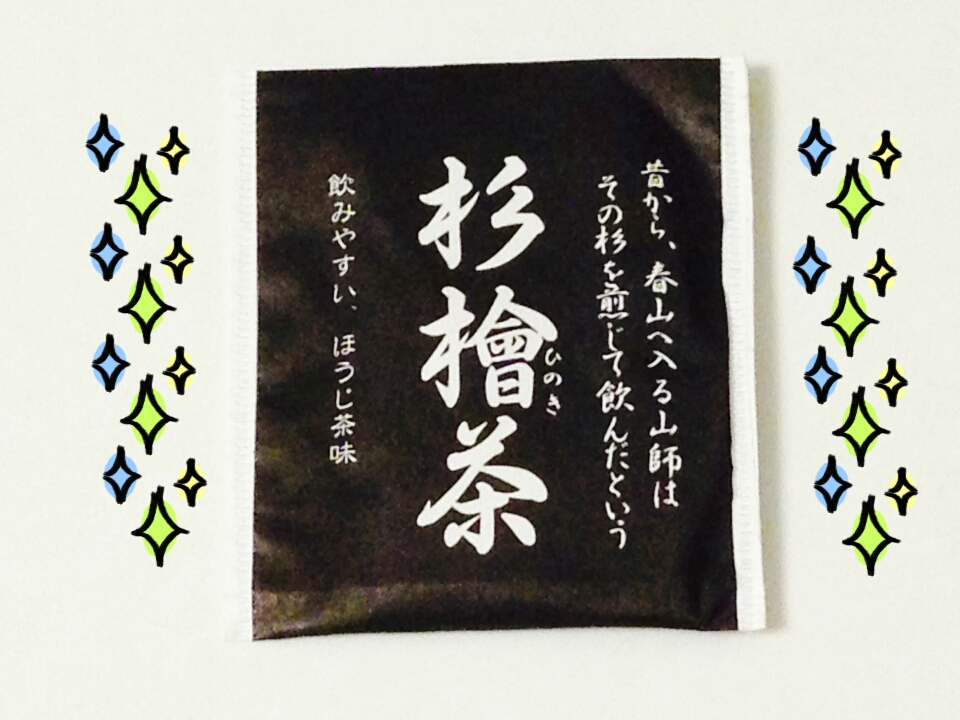 昔から、春山へ入る山師は
その杉を煎じて飲んだという
杉檜茶
ひのき
飲みやすい、ほうじ茶味